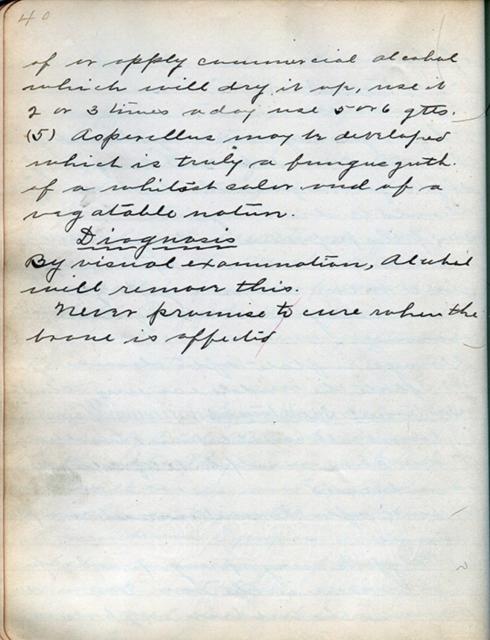 40
of or apply commercial alcohol
which will dry it up, use it
2 or 3 times a day use 5 or 6 gtts.
(5) Asperellus may be developed
which is truly a fungus guth.
of a whitest color and of a
vegatable nature.
Diognosis
By visual examination, Alcohol
will remove this.
Never promise to cure when the
brane is affected